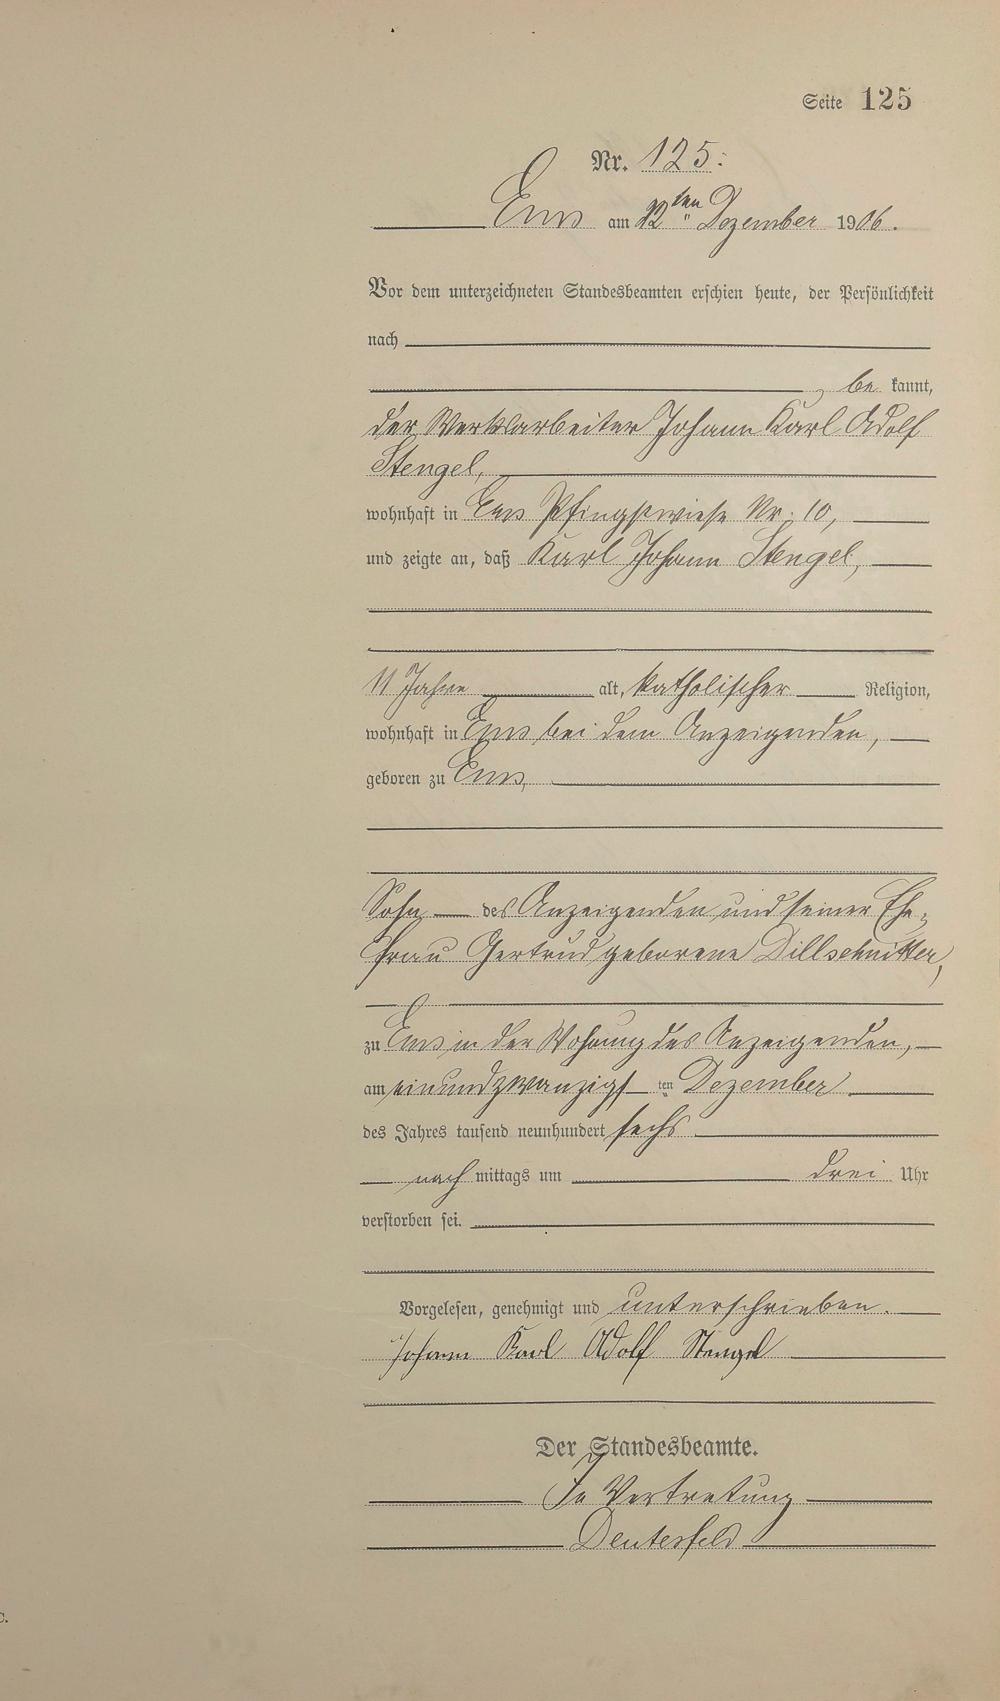 Seite 125
Nr. 125.
Ems am 22ten Dezember 1906.
Vor dem unterzeichneten Standesbeamten erschien heute, der Persönlichkeit
nach
be kannt,
der Werksarbeiter Johann Karl Adolf
Stengel,
wohnhaft in Ems Pfingstwiese Nr. 10,
und zeigte an, daß Karl Johann Stengel,
11 Jahre alt, katholischer Religion,
wohnhaft in Ems bei dem Anzeigenden,
geboren zu Ems,
Sohn des Anzeigenden und seiner Ehe-
frau Gertrud geborene Dillschnitter,
zu Ems in der Wohnung des Anzeigenden,
am einundzwanzigsten Dezember
des Jahres tausend neunhundert sechs
nach mittags um drei Uhr
verstorben sei.
Vorgelesen, genehmigt und unterschrieben.
Johann Karl Adolf Stengel
Der Standesbeamte.
In Vertretung
C.